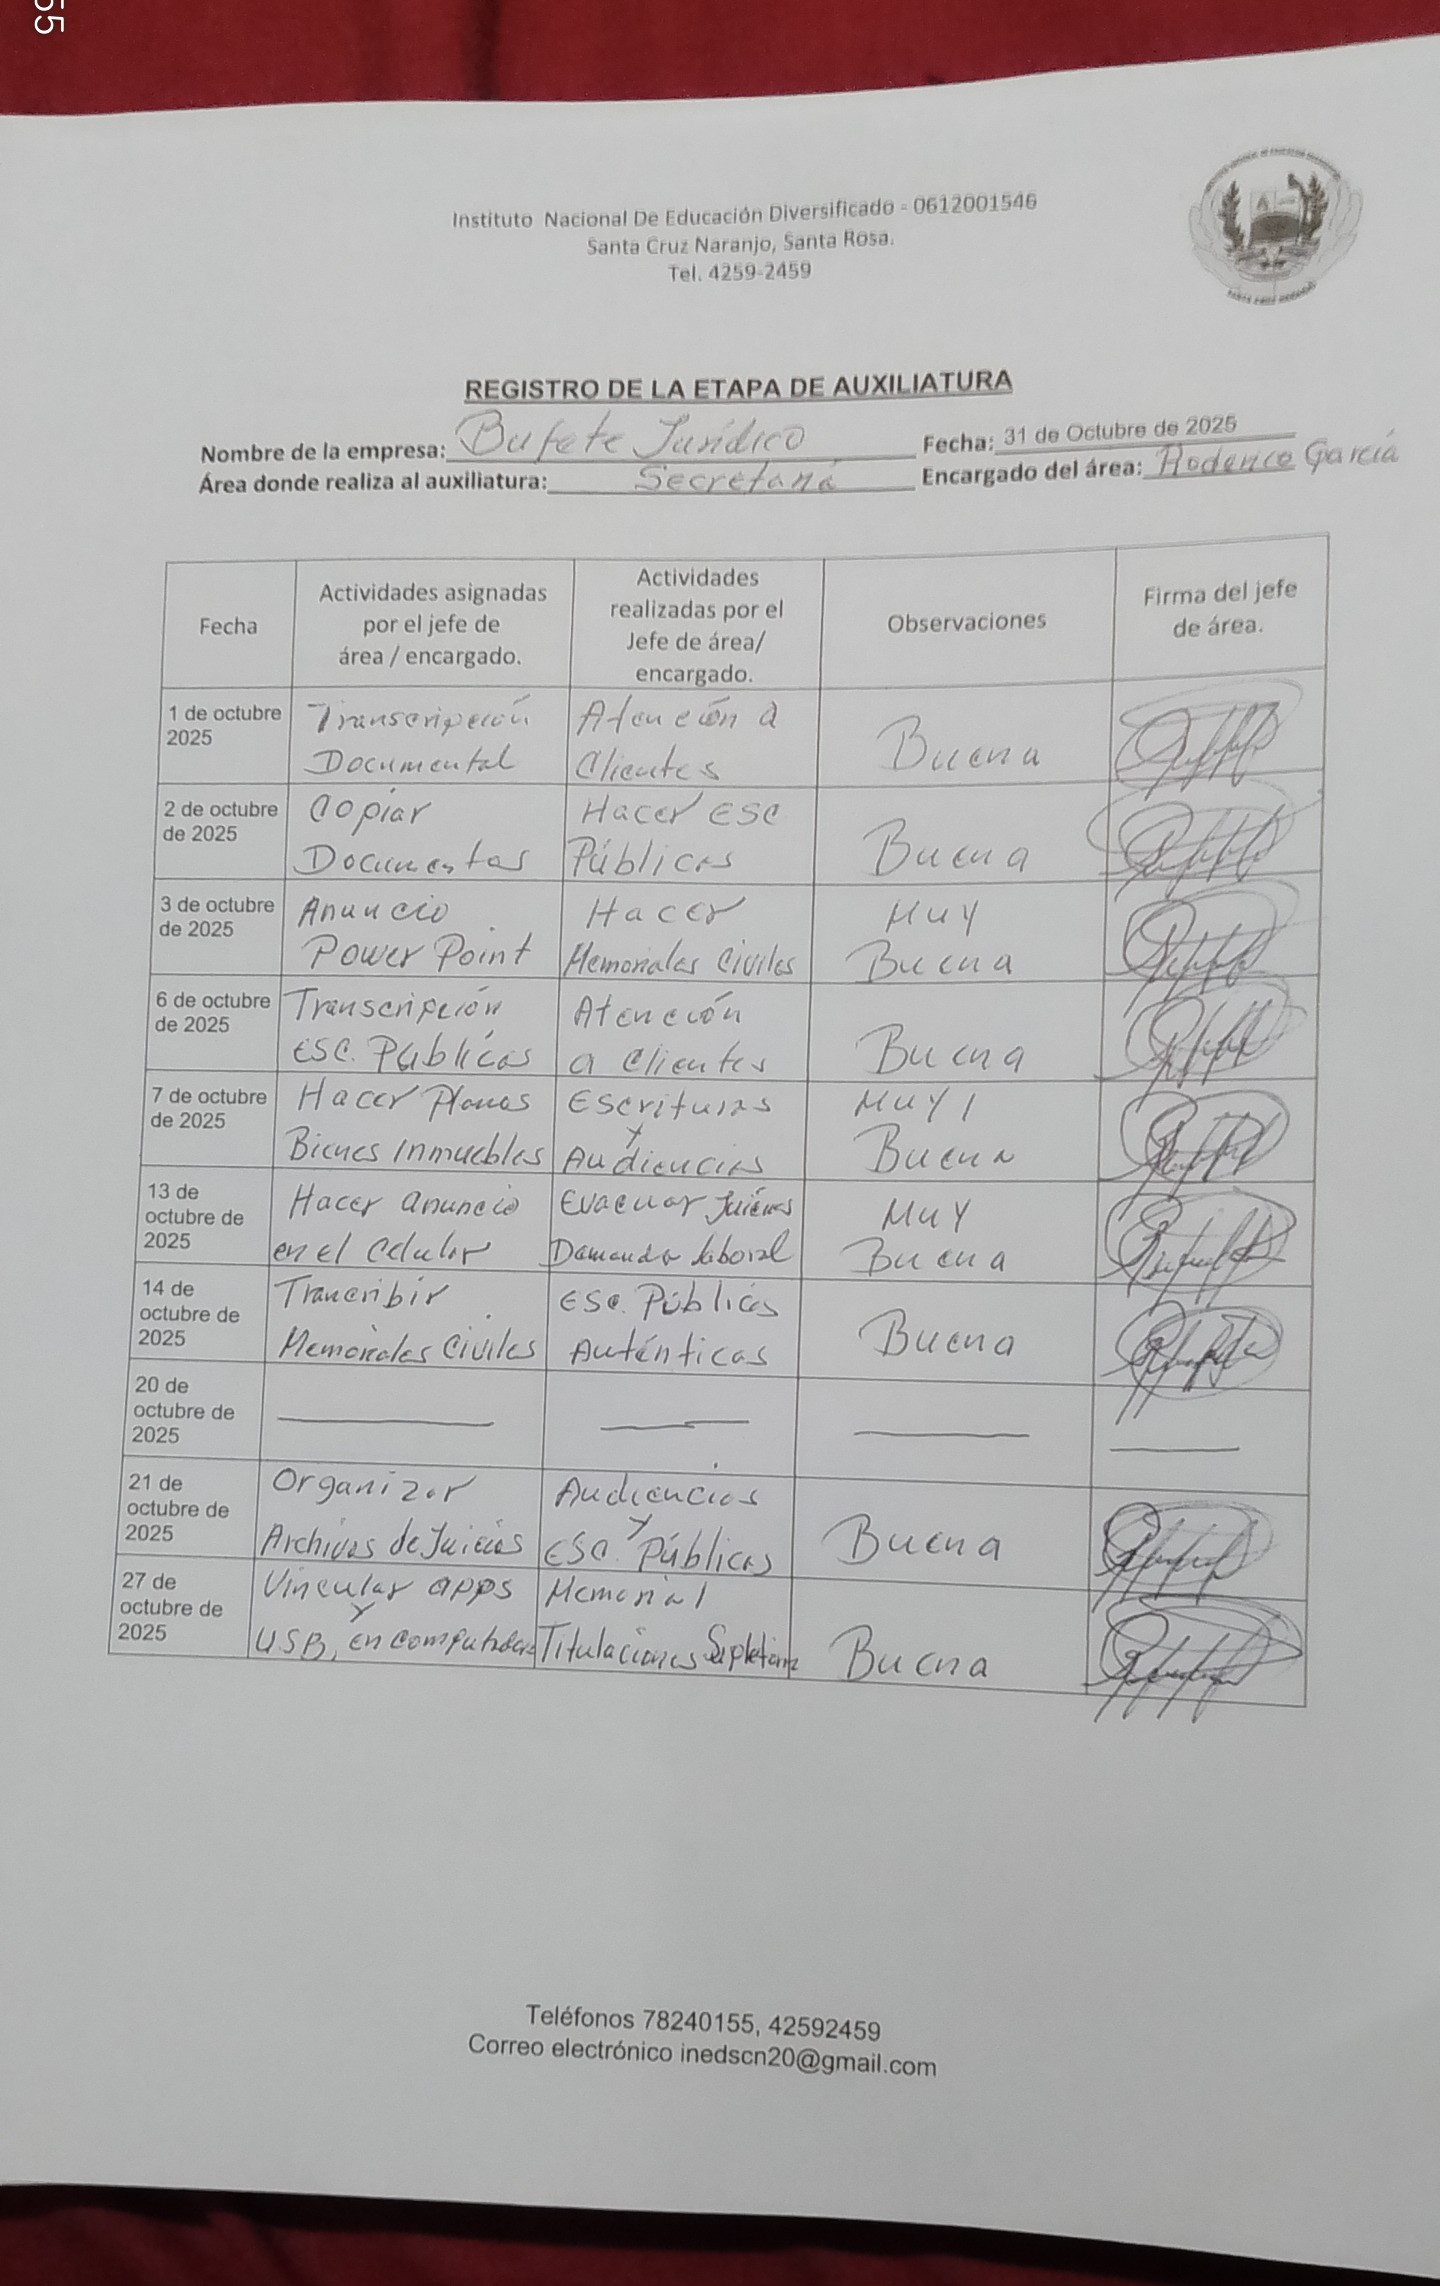 55
Instituto Nacional De Educación Diversificado - 0612001546
Santa Cruz Naranjo, Santa Rosa.
Tel. 4259-2459
REGISTRO DE LA ETAPA DE AUXILIATURA
Nombre de la empresa: Bufete Jurídico Fecha: 31 de Octubre de 2025
Área donde realiza al auxiliatura: Secretaría Encargado del área: Roderico García
Fecha
Actividades asignadas
por el jefe de
área / encargado.
Actividades
realizadas por el
Jefe de área/
encargado.
Observaciones
Firma del jefe
de área.
1 de octubre
2025
Transcripción
Documental
Atención a
Clientes
Buena
2 de octubre
de 2025
Copiar
Documentos
Hacer Esc
Públicas
Buena
3 de octubre
de 2025
Anuncio
Power Point
Hacer
Memoriales Civiles
Muy
Buena
6 de octubre
de 2025
Transcripción
Esc. Públicas
Atención
a Clientes
Buena
7 de octubre
de 2025
Hacer Planos
Bienes Inmuebles
Escrituras
y
Audiencias
Muy
Buena
13 de
octubre de
2025
Hacer anuncio
en el Celular
Evacuar Juicios
Demanda laboral
Muy
Buena
14 de
octubre de
2025
Trancribir
Memoriales Civiles
Esc. Públicas
Auténticas
Buena
20 de
octubre de
2025
21 de
octubre de
2025
Organizar
Archivos de Juicios
Audiencias
y
Esc. Públicas
Buena
27 de
octubre de
2025
Vincular apps
y
USB, en computadora
Memorial
Titulaciones Supletoria
Buena
Teléfonos 78240155, 42592459
Correo electrónico inedscn20@gmail.com